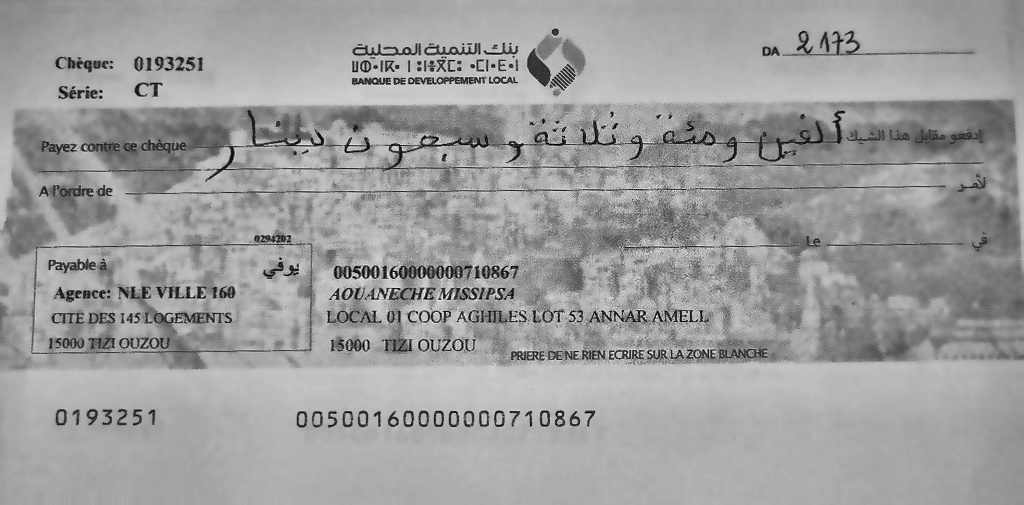 Chèque: 0193251
Série: CT
بنك التنمية المحلية
BANQUE DE DEVELOPPEMENT LOCAL
DA 2173
Payez contre ce chèque ألفين و مئة و ثلاثة و سبعون دينار إدفعو مقابل هذا الشيك
A l'ordre de لأمر
Le في
0294202
Payable à يوفي
Agence: NLE VILLE 160
CITE DES 145 LOGEMENTS
15000 TIZI OUZOU
00500160000000710867
AOUANECHE MISSIPSA
LOCAL 01 COOP AGHILES LOT 53 ANNAR AMELL
15000 TIZI OUZOU
PRIERE DE NE RIEN ECRIRE SUR LA ZONE BLANCHE
0193251 00500160000000710867